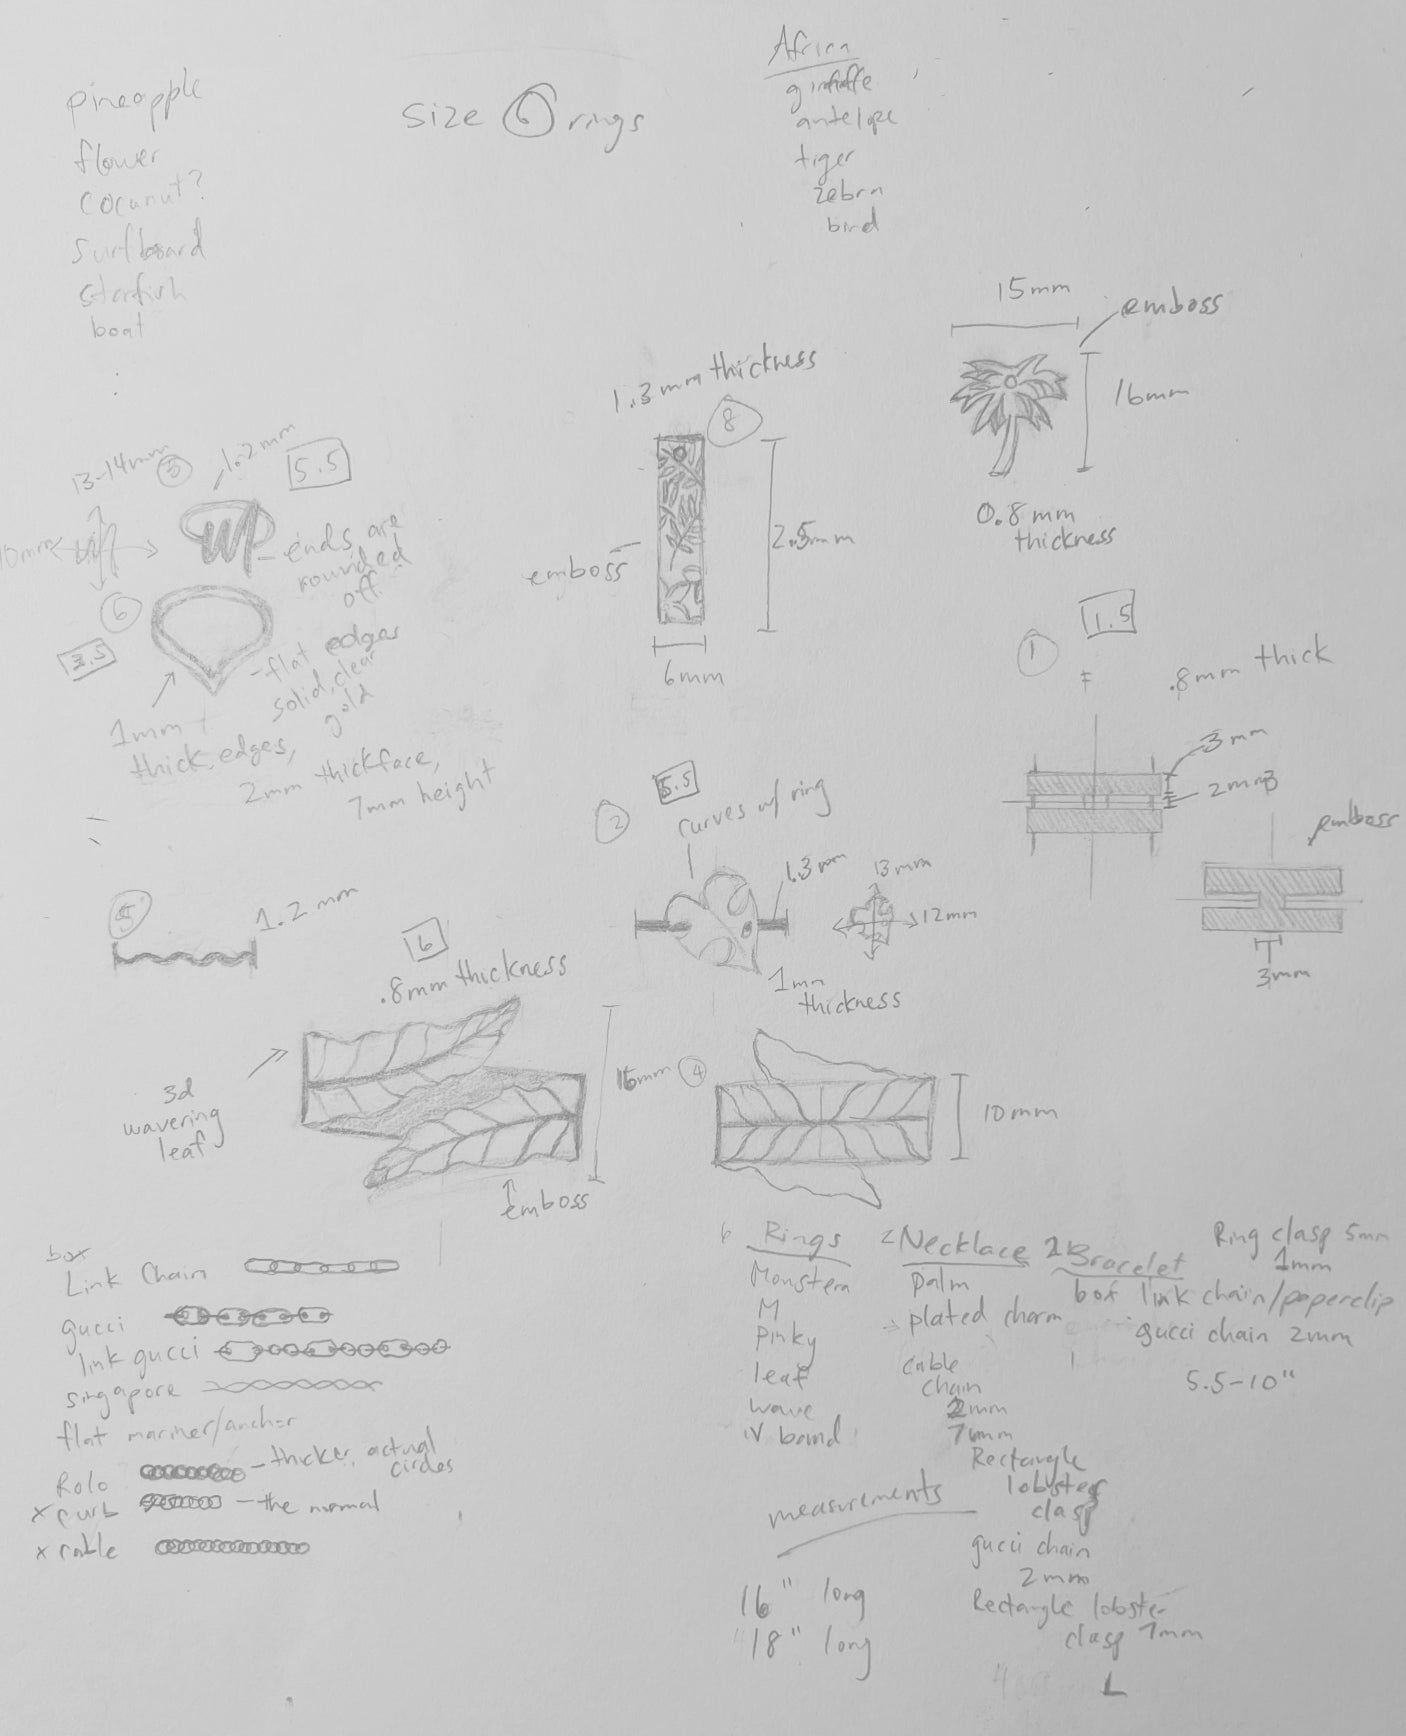 pineapple
flower
coconut?
surfboard
starfish
boat
Size 6 rings
Africa
giraffe
antelope
tiger
zebra
bird
15mm
emboss
16mm
0.8mm
thickness
1.3mm thickness
8
2.5mm
emboss
6mm
13-14mm
3
1.2mm
5.5
10mm
ends are
rounded
off
6
3.5
flat edges
solid, clear
gold
1mm
thick edges,
2mm thick face,
7mm height
1
1.5
.8mm thick
3mm
2mm
emboss
3mm
2
5.5
curves w/ ring
1.3mm
13mm
12mm
1mm
thickness
5
1.2mm
6
.8mm thickness
3d
wavering
leaf
16mm
emboss
4
10mm
box
Link Chain
gucci
link gucci
singapore
flat mariner/anchor
Rolo - thicker, actual
circles
x curb - the normal
x cable
6 Rings
Monstera
M
Pinky
leaf
wave
IV band
2 Necklace
palm
plated charm
cable
chain
2mm
7mm
Rectangle
lobster
clasp
gucci chain
2mm
Rectangle lobster
clasp 7mm
L
2 Bracelet
box link chain/paperclip
gucci chain 2mm
5.5-10"
Ring clasp 5mm
1mm
measurements
16" long
18" long